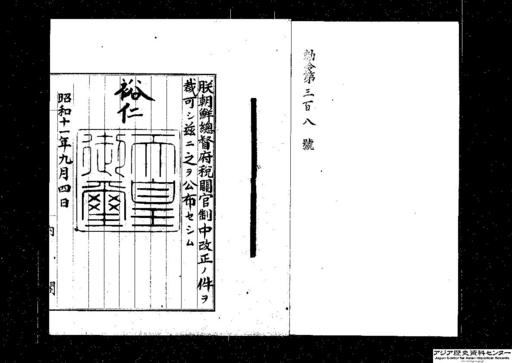 勅令第三百八號
朕朝鮮總督府税關官制中改正ノ件ヲ
裁可シ玆ニ之ヲ公布セシム
裕仁
天皇御璽
昭和十一年九月四日
内閣
アジア歴史資料センター
Japan Center for Asian Historical Records